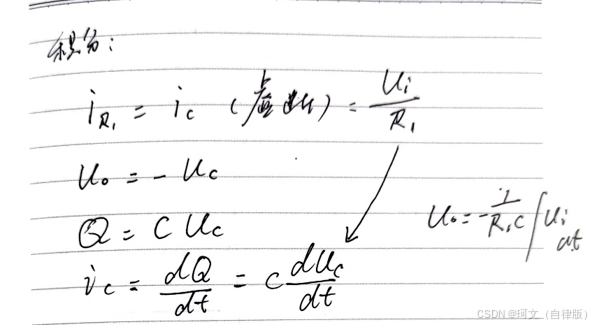 积分:
i_{R_1} = i_C (虚断) = \frac{U_i}{R_1}
U_o = - U_C
Q = C U_C
U_o = -\frac{1}{R_1 C} \int U_i dt
i_C = \frac{dQ}{dt} = C \frac{dU_C}{dt}
CSDN @珂文（自律版）